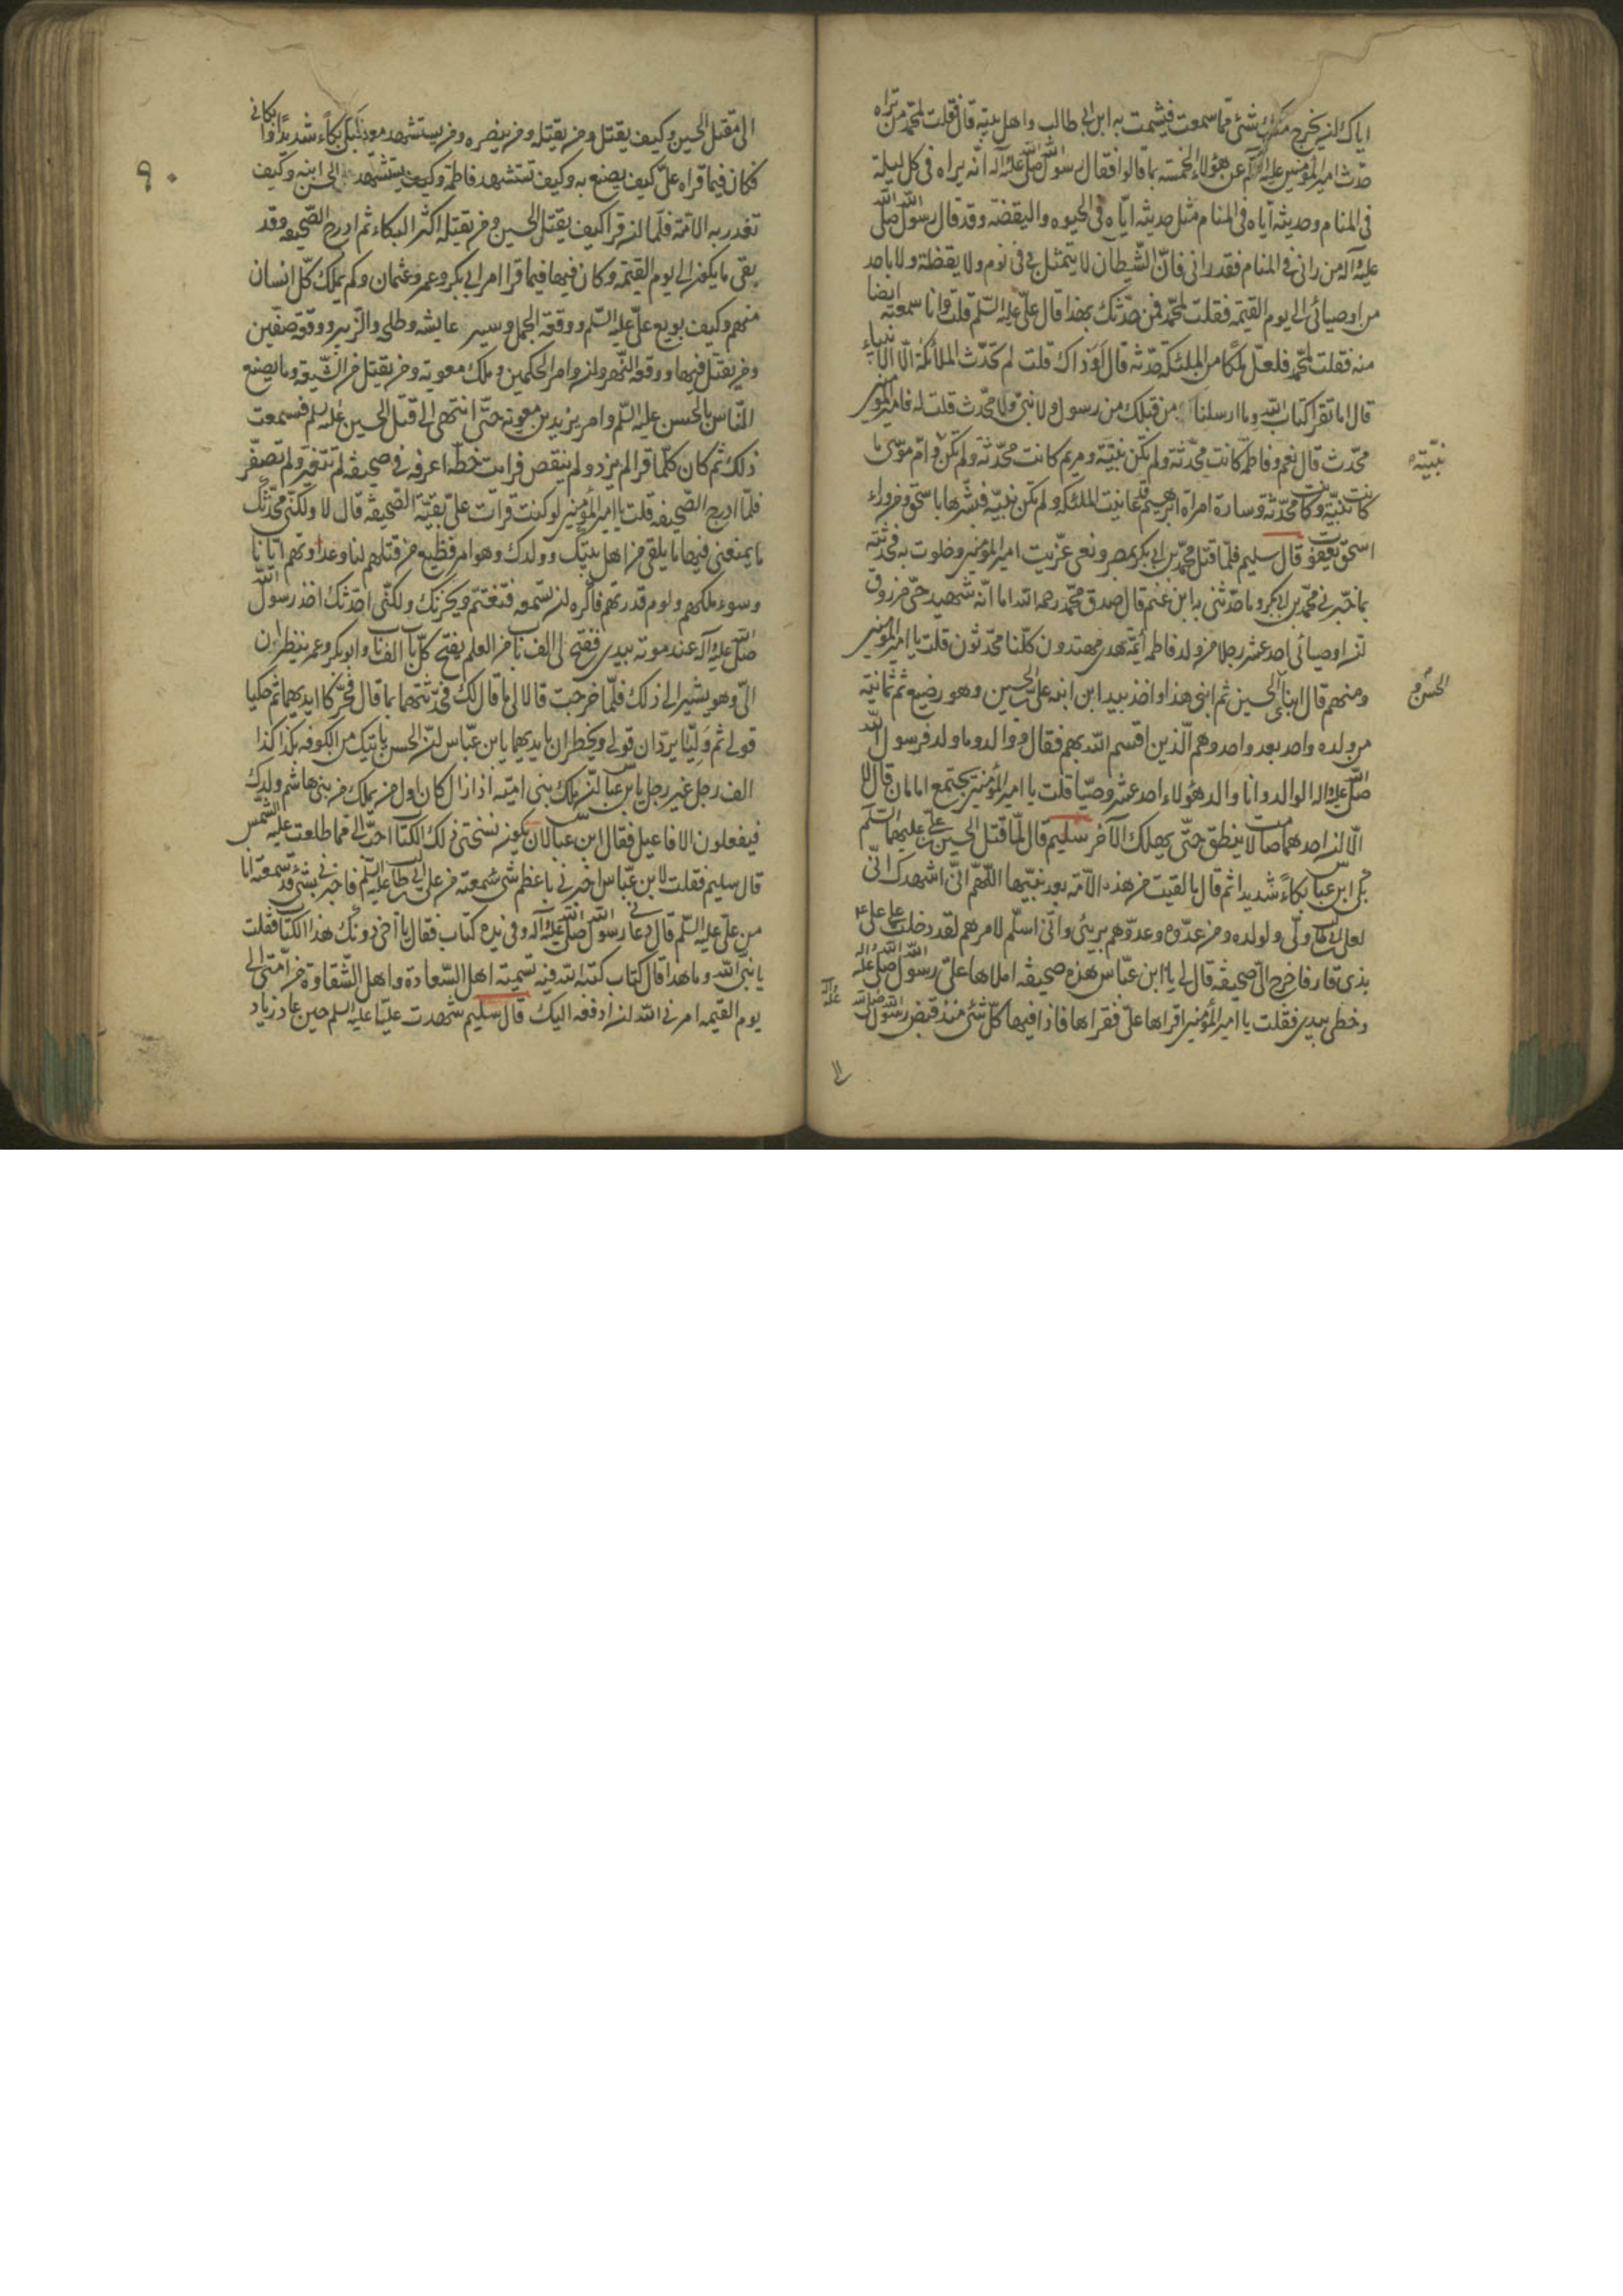 اياك ان يخرج منك شئ مما سمعت فيشمت به ابن ابي طالب واهل بيته قال فقلت لمحمد من تراه
حدث امير المؤمنين عليه السلام عن هؤلاء الخمسة بما قالوا فقال رسول الله صلى الله عليه وآله انه يراه في كل ليلة
في المنام وحديثه اياه في المنام مثل حديثه اياه في الحيوة واليقضة وقد قال رسول الله صلى الله
عليه وآله من راني في المنام فقد راني فان الشيطان لا يتمثل بي في نوم ولا يقظة ولا باحد
من اوصيائي الى يوم القيمة فقلت لمحمد فمن حدثك بهذا قال علي عليه السلم قلت وانا سمعته ايضا
منه فقلت لمحمد فلعل ملكا من الملئكة حدثه قال او ذاك قلت لم تحدث الملائكة الا الانبياء
قال اما تقرا كتاب الله وما ارسلنا من قبلك من رسول ولا نبي ولا محدث قلت له فامير المؤمنين
محدث قال نعم وفاطمة كانت محدثة ولم تكن نبية ومريم كانت محدثة ولم تكن وام موسى ما
نبيته
كانت نبية وكانت محدثة وسارة امراة ابرهيم قد عاينت الملئكة ولم تكن نبية فبشرها باسحق ومن وراء
اسحق يعقوب قال سليم فلما قتل محمد بن ابي بكر بمصر ونعي عزيت امير المؤمنين وخلوت به فحدثته
بما خبرني محمد بن ابي بكر وما حدثني به ابن غنم قال صدق محمد رحمه الله اما انه شهيد حي مرزوق
ان اوصيائي احد عشر رجلا من ولد فاطمة ائمة هدى مهتدون كلنا محدثون قلت يا امير المؤمنين
ومنهم قال ابناي الحسين ثم ابني هذا واخذ بيد ابن ابنه علي بن الحسين وهو رضيع ثم ثمانية
الحسن و
من ولده واحد بعد واحد وهم الذين اقسم الله بهم فقال ووالد وما ولد فرسول الله
صلى الله عليه وآله الوالد وانا والد هؤلاء احد عشر وصيا قلت يا امير المؤمنين يجتمع امامان قال لا
الا ان احدهما صامت لا ينطق حتى يهلك الآخر سليم قال لما قتل الحسين بن علي عليهما السلم
بكى ابن عباس بكاء شديدا ثم قال ما لقيت من هذه الامة بعد نبيها اللهم اني اشهدك اني
لعلي بن ابي طالب ولي ولولده ومن عدوه وعدوهم بريئ واني اسلم لامرهم لقد دخلت على علي ع
بذي قار فاخرج الي صحيفة قال لي يا ابن عباس هذه صحيفة املاها علي رسول الله صلى الله عليه وآله
وخطي بيدي فقلت يا امير المؤمنين اقراها علي فقراها فاذا فيها كل شئ منذ قبض رسول الله صلى الله
عليه وآله
الى
الى مقتل الحسين وكيف يقتل ومن يقتله ومن ينصره ومن يستشهد معه فبكى بكاء شديدا وابكاني
فكان فيما قراه علي كيف يصنع به وكيف تستشهد فاطمة وكيف يستشهد الحسن ابنه وكيف
تغدر به الامة فلما ان قرا كيف يقتل الحسين ومن يقتله اكثر البكاء ثم ادرج الصحيفة وقد
بقي ما يكون الى يوم القيمة وكان فيها فيما قرا امر ابي بكر وعمر وعثمان وكم يملك كل انسان
منهم وكيف بويع علي عليه السلم ووقعة الجمل وسير عايشه وطلحه والزبير ووقعة صفين
ومن يقتل فيها ووقعة النهروان وامر الحكمين وملك معوية ومن يقتل من الشيعة وما يصنع
الناس بالحسن عليه السلم وامر يزيد بن معوية حتى انتهى الى قتل الحسين عليه السلم فسمعت
ذلك ثم كان كلما قرا لم يزد ولم ينقص فرايت خطه اعرفه في صحيفة لم تتغير ولم تصفر
فلما ادرج الصحيفة قلت يا امير المؤمنين لو كنت قرات علي بقية الصحيفة قال لا ولكني محدثك
ما يمنعني فيها ما يلقى من اهل بيتك وولدك وهو امر فظيع من قتلهم لنا وعداوتهم ايانا
وسوء ملكهم ولوم قدرتهم فاكره ان تسمعه فتغتم ويحزنك ولكني احدثك اخذ رسول الله
صلى الله عليه وآله عند موته بيدي ففتح لي الف باب من العلم يفتح كل باب الف باب وابو بكر وعمر ينظران
الي وهو يشير الي ذلك فلما خرجت قالا لي ما قال لك فحدثتهما بما قال فحركا ايديهما ثم حكيا
قولي ثم وليا يردان قولي ويخطران بايديهما يا بن عباس ان الحسن ياتيك من الكوفة بكذا كذا
الف رجل غير رجل يا بن عباس ان ملك بني امية اذا زال كان اول من يملك من بني هاشم ولدك
فيفعلون الافاعيل فقال ابن عباس لان يكون نسختني ذلك الكتاب احب الي مما طلعت عليه الشمس
قال سليم فقلت لابن عباس اخبرني باعظم شئ سمعته من علي بن ابي طالب عليه السلم فاخبرني بشئ قد سمعته انا
من علي عليه السلم قال دعاني رسول الله صلى الله عليه وآله وفي يده كتاب فقال يا اخي دونك هذا الكتاب فقلت
يا نبي الله وما هذا قال كتاب كتبه الله فيه تسمية اهل السعادة واهل الشقاوة من امتي الى
يوم القيمة امرني الله ان ادفعه اليك قال سليم شهدت عليا عليه السلم حين عاد زياد
٩٠